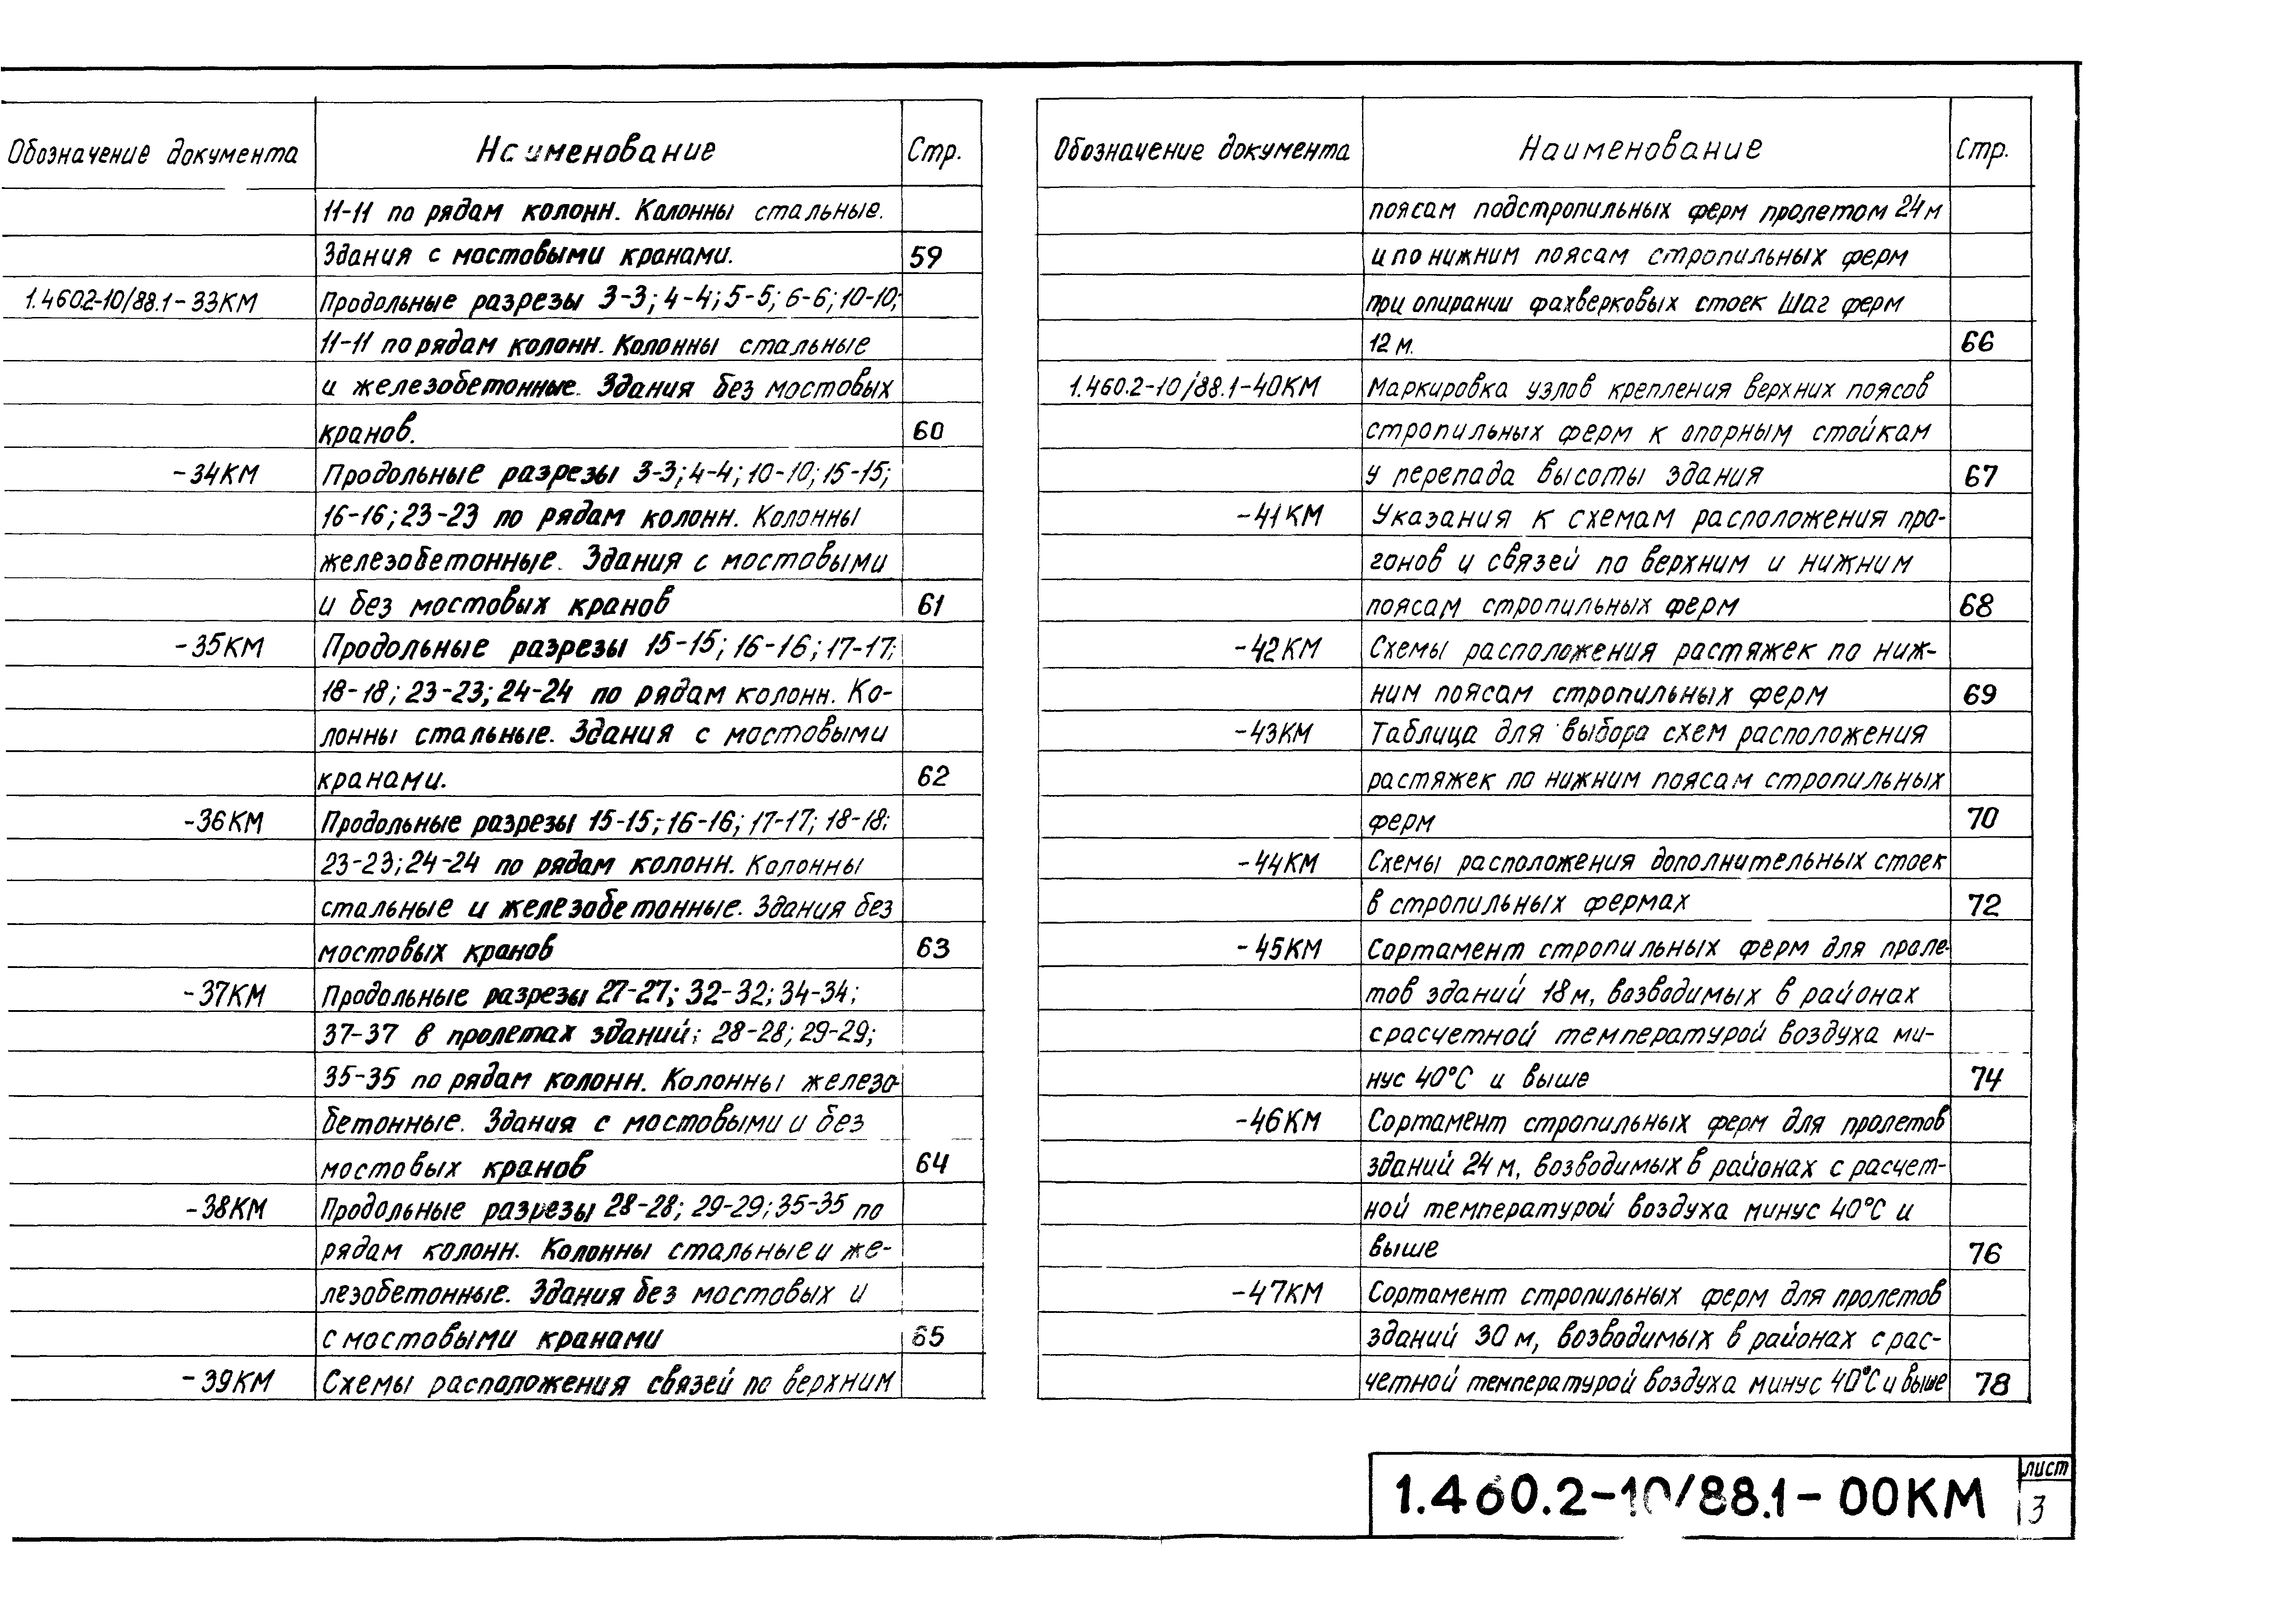 Обозначение документа Наименование Стр.
11-11 по рядам колонн. Колонны стальные.
Здания с мостовыми кранами. 59
1.460.2-10/88.1-33КМ Продольные разрезы 3-3; 4-4; 5-5; 6-6; 10-10;
11-11 по рядам колонн. Колонны стальные
и железобетонные. Здания без мостовых
кранов. 60
-34КМ Продольные разрезы 3-3; 4-4; 10-10; 15-15;
16-16; 23-23 по рядам колонн. Колонны
железобетонные. Здания с мостовыми
и без мостовых кранов 61
-35КМ Продольные разрезы 15-15; 16-16; 17-17;
18-18; 23-23; 24-24 по рядам колонн. Ко-
лонны стальные. Здания с мостовыми
кранами. 62
-36КМ Продольные разрезы 15-15; 16-16; 17-17; 18-18;
23-23; 24-24 по рядам колонн. Колонны
стальные и железобетонные. Здания без
мостовых кранов 63
-37КМ Продольные разрезы 27-27; 32-32; 34-34;
37-37 в пролетах зданий; 28-28; 29-29;
35-35 по рядам колонн. Колонны железо-
бетонные. Здания с мостовыми и без
мостовых кранов 64
-38КМ Продольные разрезы 28-28; 29-29; 35-35 по
рядам колонн. Колонны стальные и же-
лезобетонные. Здания без мостовых и
с мостовыми кранами 65
-39КМ Схемы расположения связей по верхним
Обозначение документа Наименование Стр.
поясам подстропильных ферм пролетом 24м
и по нижним поясам стропильных ферм
при опирании фахверковых стоек Шаг ферм
12 м. 66
1.460.2-10/88.1-40КМ Маркировка узлов крепления верхних поясов
стропильных ферм к опорным стойкам
у перепада высоты здания 67
-41КМ Указания к схемам расположения про-
гонов и связей по верхним и нижним
поясам стропильных ферм 68
-42КМ Схемы расположения растяжек по ниж-
ним поясам стропильных ферм 69
-43КМ Таблица для выбора схем расположения
растяжек по нижним поясам стропильных
ферм 70
-44КМ Схемы расположения дополнительных стоек
в стропильных фермах 72
-45КМ Сортамент стропильных ферм для проле-
тов зданий 18м, возводимых в районах
с расчетной температурой воздуха ми-
нус 40°С и выше 74
-46КМ Сортамент стропильных ферм для пролетов
зданий 24 м, возводимых в районах с расчет-
ной температурой воздуха минус 40°С и
выше 76
-47КМ Сортамент стропильных ферм для пролетов
зданий 30 м, возводимых в районах с рас-
четной температурой воздуха минус 40°С и выше 78
1.460.2-10/88.1-00КМ
лист
3